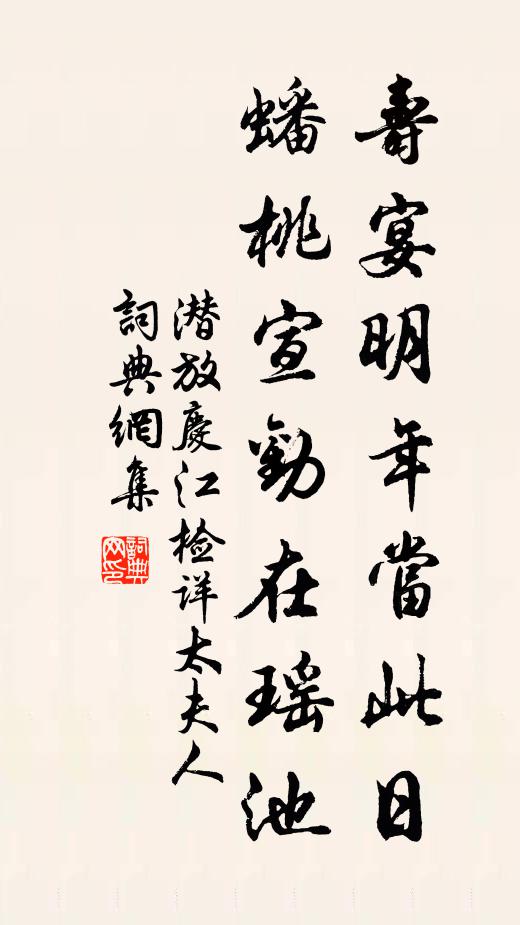 壽宴明年當此日
蟠桃宣勸在瑶池
潜放慶江檢详太夫人
詞典網集
詞典
网印